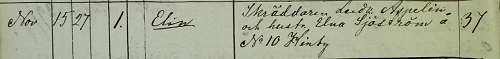 Nov 15 27 1. Elin Skräddaren Appelin 37
och hustr. Elna Sjöström å
No 10 Hinby